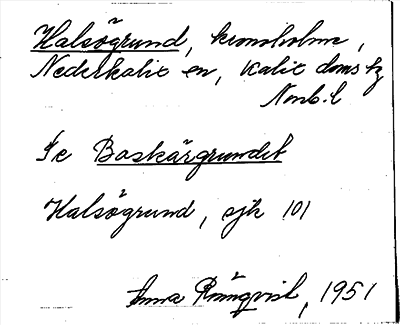 Halsögrund, kronoholme,
Nederkalix sn, Kalix doms tg
Nmb. l
Se Baskärgrundet
Halsögrund, sjk 101
Anna Rönnqvist, 1951